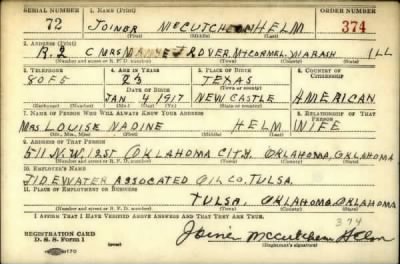 SERIAL NUMBER 1. NAME (Print) ORDER NUMBER
72 JOINER MCCUTCHEN HELM 374
(First) (Middle) (Last)
2. ADDRESS (Print)
R.2 C MRS J ROVER, MTCARMEL, WABASH ILL
(Number and street or R. F. D. number) (Town) (County) (State)
3. TELEPHONE 4. AGE IN YEARS 5. PLACE OF BIRTH 6. COUNTRY OF CITIZENSHIP
80F5 23 TEXAS
DATE OF BIRTH (Town or county)
JAN 4 1917 NEW CASTLE AMERICAN
(Exchange) (Number) (Mo.) (Day) (Yr.) (State or country)
7. NAME OF PERSON WHO WILL ALWAYS KNOW YOUR ADDRESS 8. RELATIONSHIP OF THAT PERSON
MRS. LOUISE NADINE HELM WIFE
(Mr., Mrs., Miss) (First) (Middle) (Last)
9. ADDRESS OF THAT PERSON
511 N.W. 21ST OKLAHOMA CITY, OKLAHOMA, OKLAHOMA
(Number and street or R. F. D. number) (Town) (County) (State)
10. EMPLOYER'S NAME
TIDEWATER ASSOCATED OIL CO, TULSA,
11. PLACE OF EMPLOYMENT OR BUSINESS
TULSA, OKLAHOMA, OKLAHOMA
(Number and street or R. F. D. number) (Town) (County) (State)
I AFFIRM THAT I HAVE VERIFIED ABOVE ANSWERS AND THAT THEY ARE TRUE.
374
REGISTRATION CARD
D. S. S. Form 1 Joiner Mccutchen Helm
(Registrant's signature)